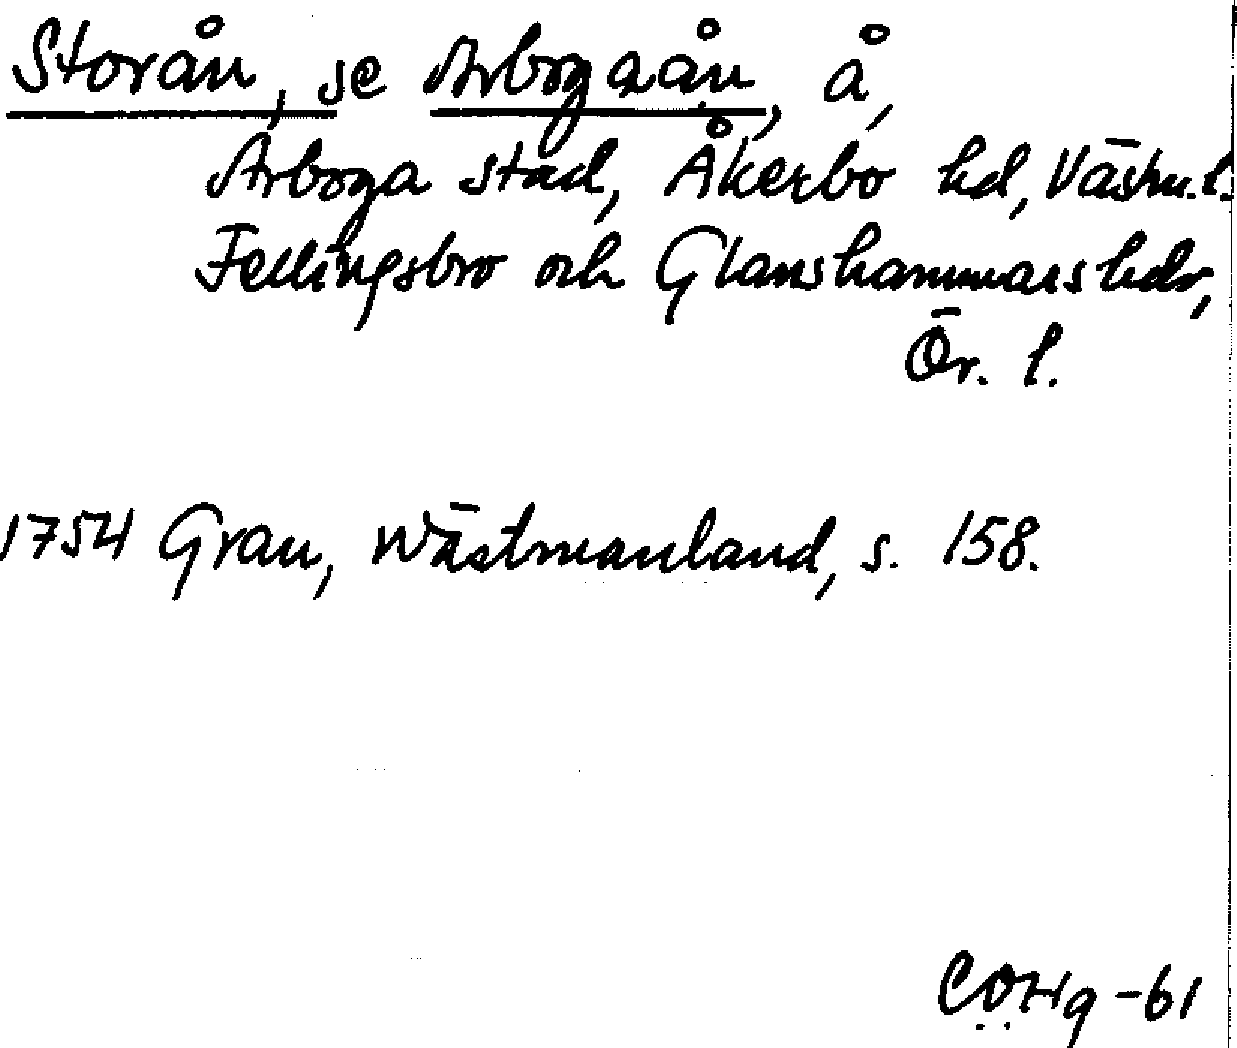 Storån, se Arbogaån, å,
Arboga stad, Åkerbo hd, Västm. l.
Fellingsbro och Glanshammars hdr,
Ör. l.
1754 Grau, Wästmanland, s. 158.
COHg -61